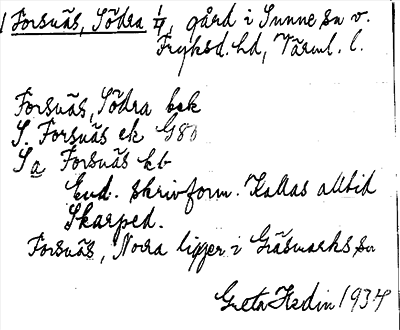 1 Forsnäs, Södra 1/4, gård i Sunne sn v.
Fryksd. hd, Värml. l.
Forsnäs, Södra bek
S. Forsnäs ek G80
Sa Forsnäs kb
End. skrivform. Kallas alltid
Skarped.
Forsnäs, Norra ligger i Gräsmarks sn
Greta Hedin 1934